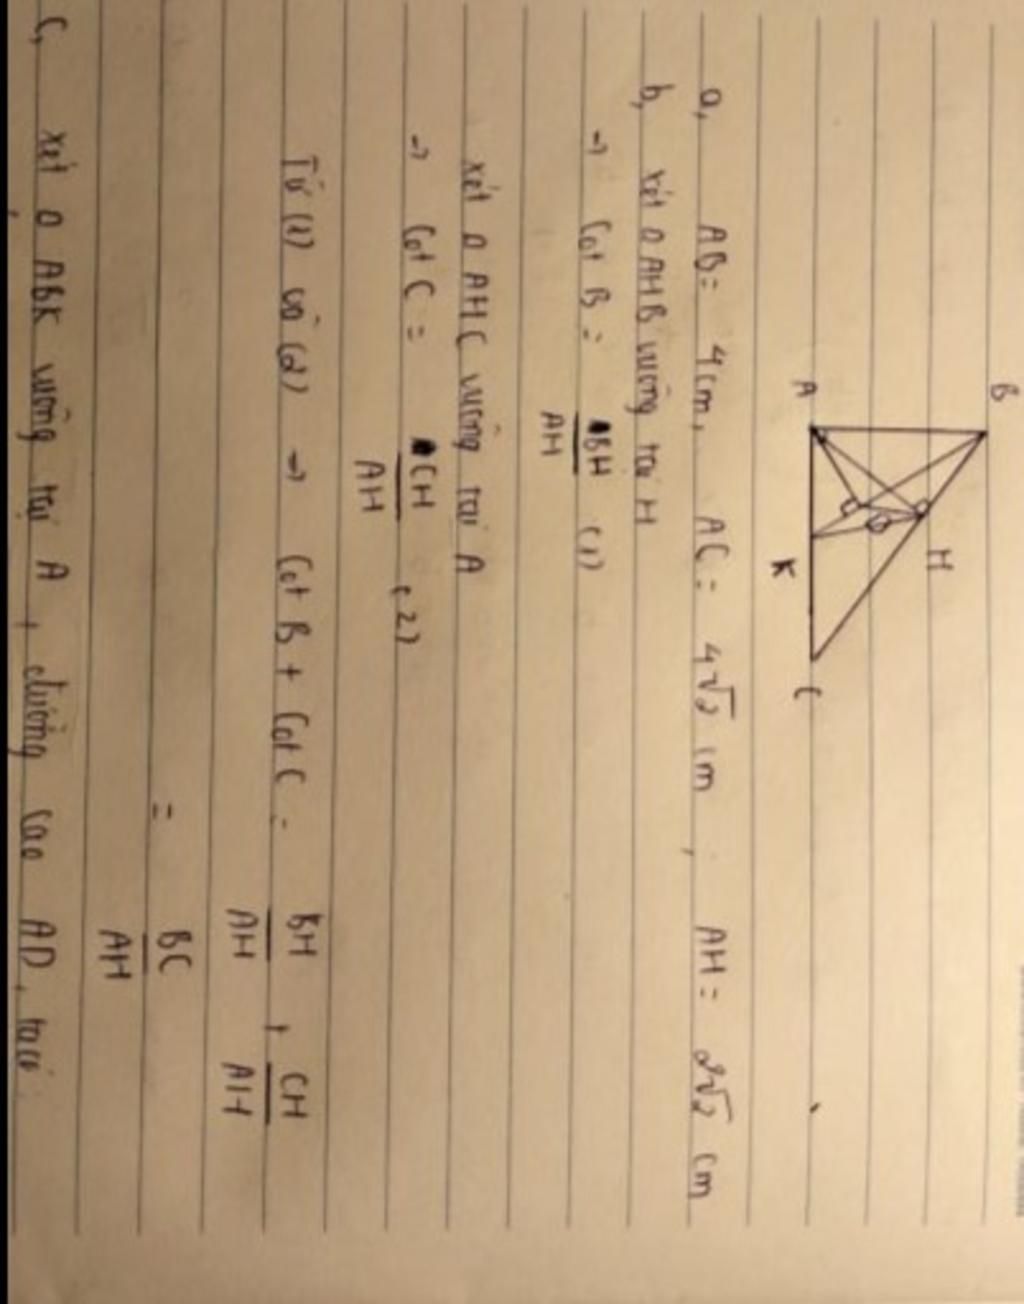 B
H
A
K
C
a, AB = 4cm, AC = 4√2 cm, AH = 2√2 cm
b, xét Δ AHB vuông tại H
→ Cot B = BH/AH (1)
xét Δ AHC vuông tại A
→ Cot C = CH/AH (2)
Từ (1) và (2) → Cot B + Cot C = BH/AH + CH/AH
= BC/AH
C, xét Δ ABK vuông tại A, đường cao AD, ta có